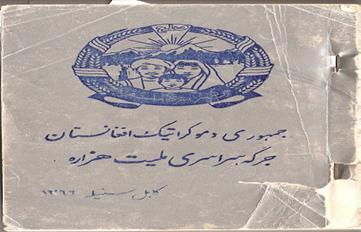 جمهوری دموکراتیک افغانستان
جرگه سراسری ملیت هزاره
کابل سنبله ۱۳۶۶